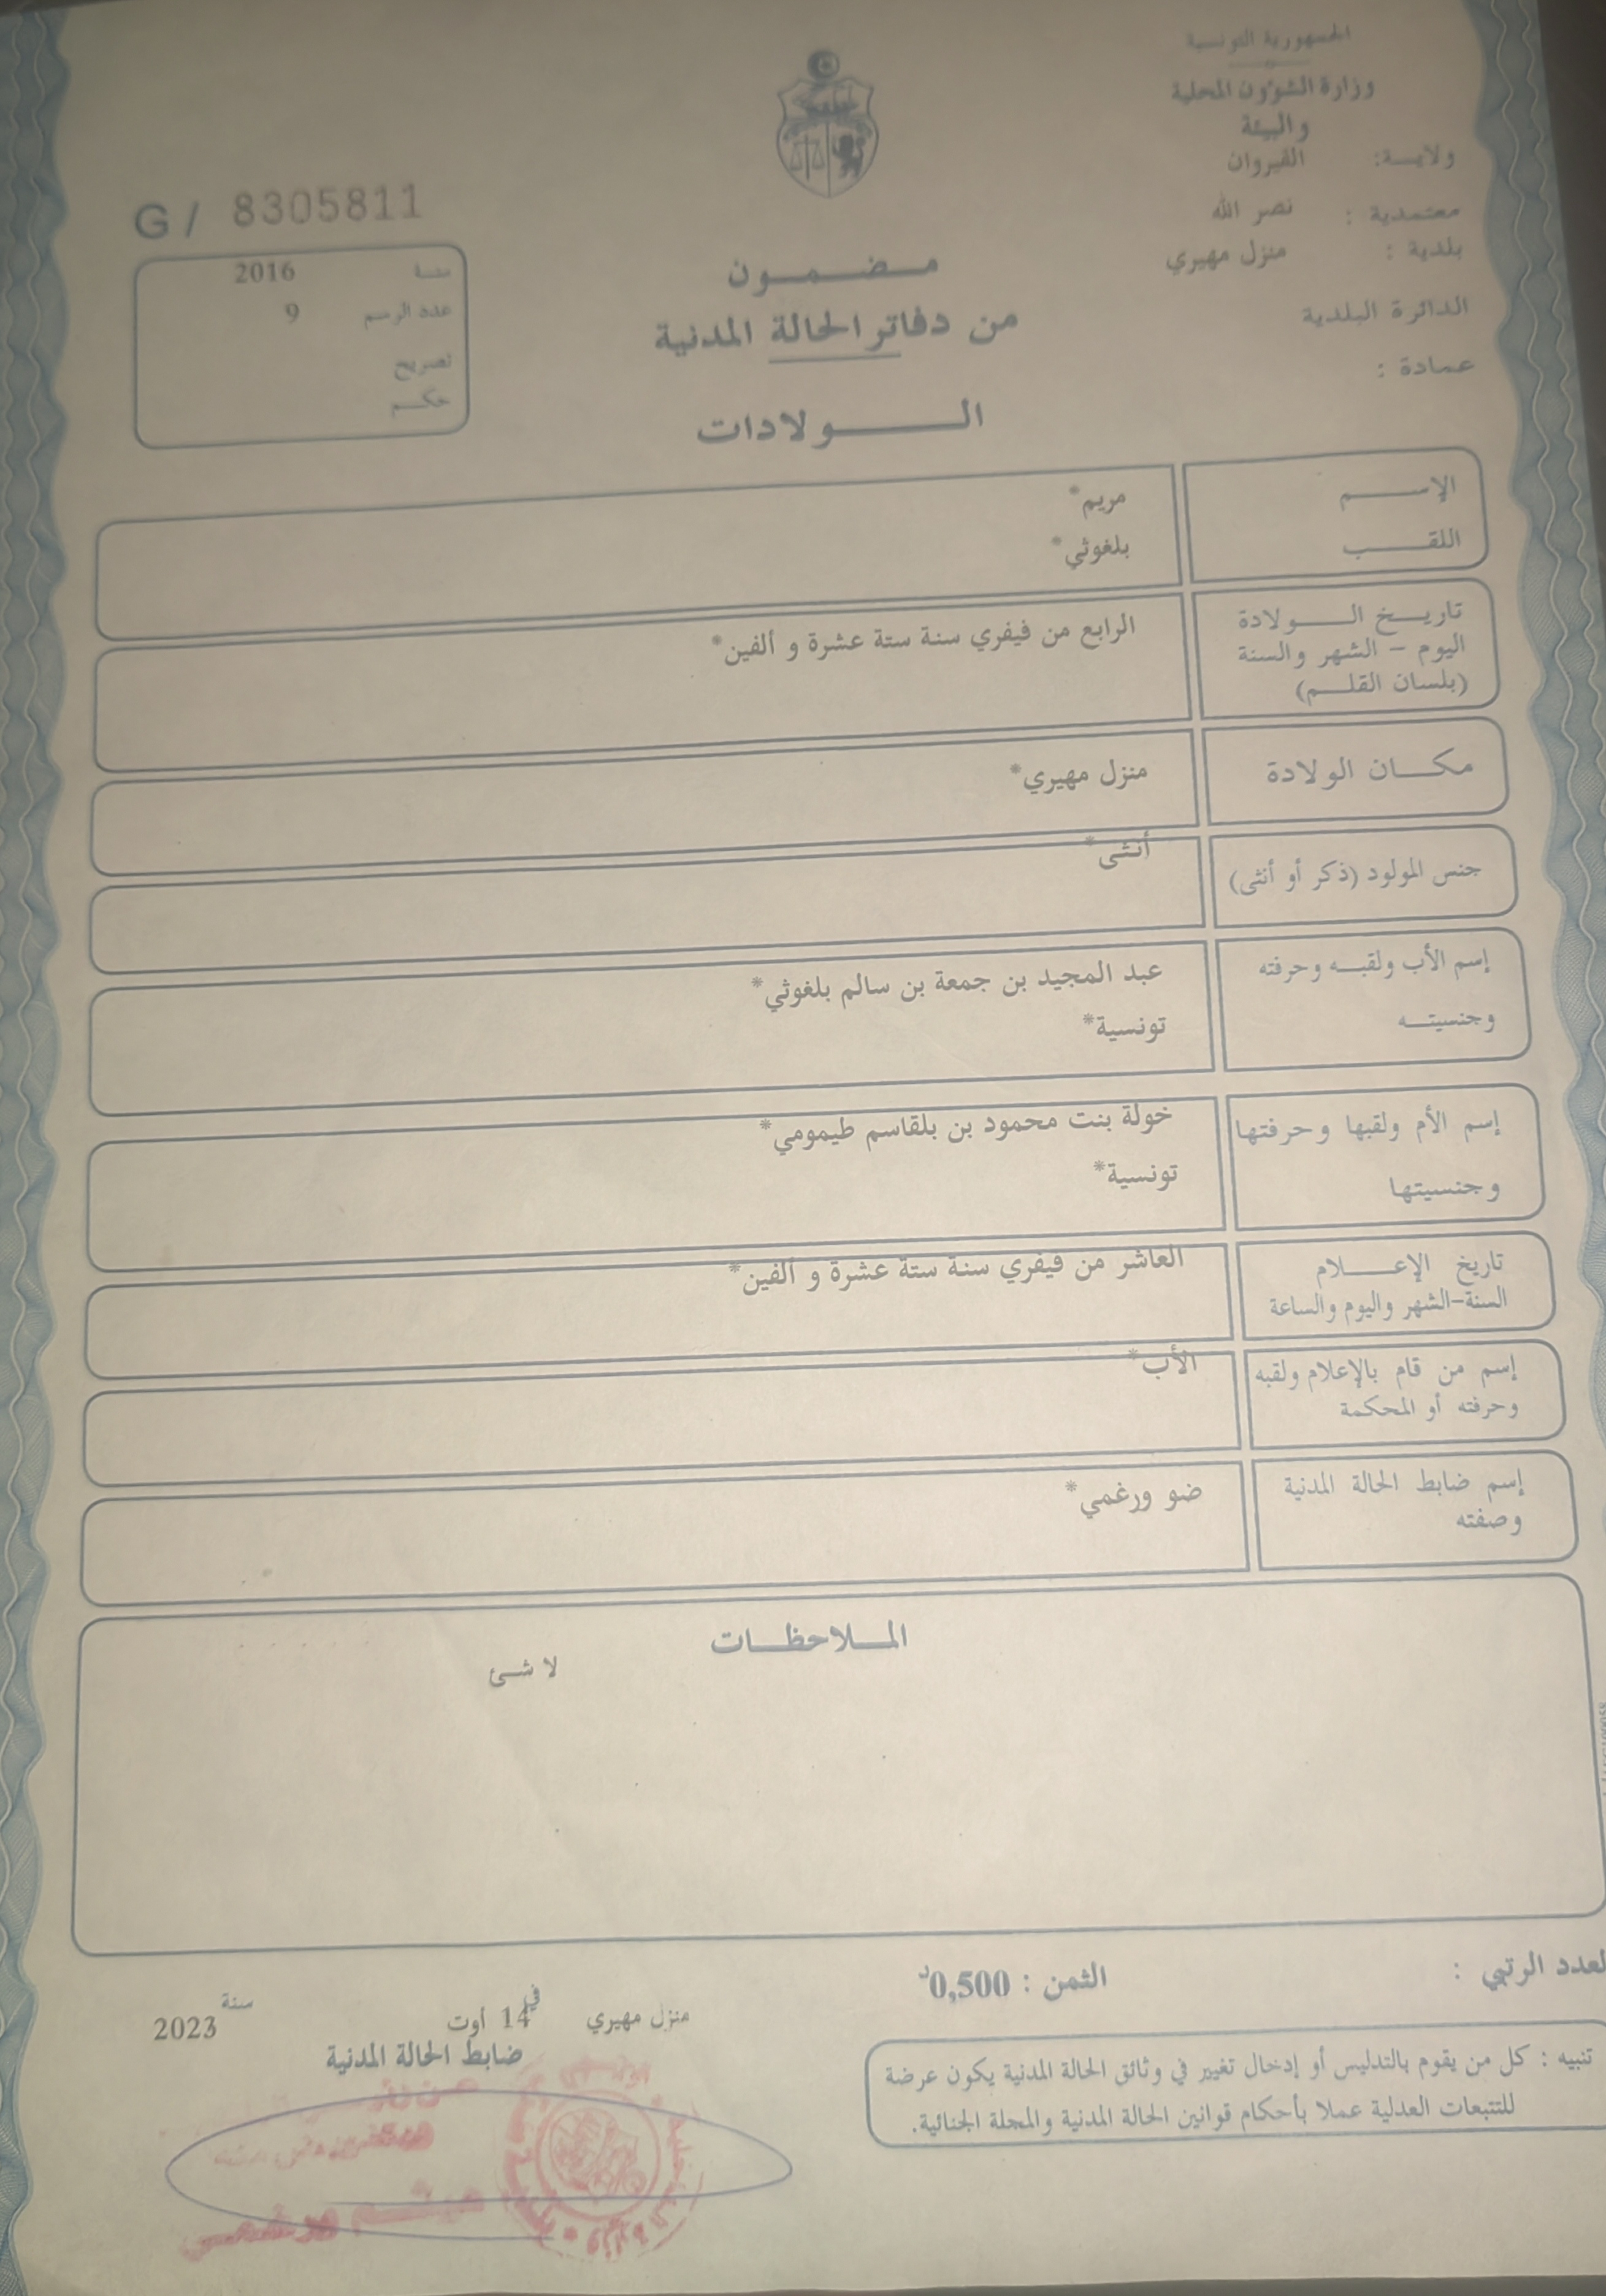 الجمهورية التونسية
وزارة الشؤون المحلية
والبيئة
ولايـــة: القيروان
معتمدية : نصر الله
بلدية : منزل مهيري
الدائرة البلدية
عمادة :
G / 8305811
سنـة 2016
عدد الرسم 9
تصريح
حكـــم
مــضــمــون
من دفاتر الحالة المدنية
الــــــولادات
الإســـــم مريم*
اللقـــــب بلغوثي*
تاريـــخ الـــــولادة
اليوم - الشهر والسنة
(بلسان القلـــم)
الرابع من فيفري سنة ستة عشرة و ألفين*
مكـــان الولادة منزل مهيري*
جنس المولود (ذكر أو أنثى) أنثى*
إسم الأب ولقبـــه وحرفته عبد المجيد بن جمعة بن سالم بلغوثي*
وجنسيتـــه تونسية*
إسم الأم ولقبها وحرفتها خولة بنت محمود بن بلقاسم طيمومي*
وجنسيتها تونسية*
تاريخ الإعــــلام العاشر من فيفري سنة ستة عشرة و ألفين*
السنة-الشهر واليوم والساعة
إسم من قام بالإعلام ولقبه الأب*
وحرفته أو المحكمة
إسم ضابط الحالة المدنية ضو ورغمي*
وصفته
المـــلاحظـــات
لا شئ
لعدد الرتبي :
الثمن : 0,500د
منزل مهيري في 14 أوت سنة 2023
ضابط الحالة المدنية
تنبيه : كل من يقوم بالتدليس أو إدخال تغيير في وثائق الحالة المدنية يكون عرضة
للتتبعات العدلية عملا بأحكام قوانين الحالة المدنية والمجلة الجنائية.